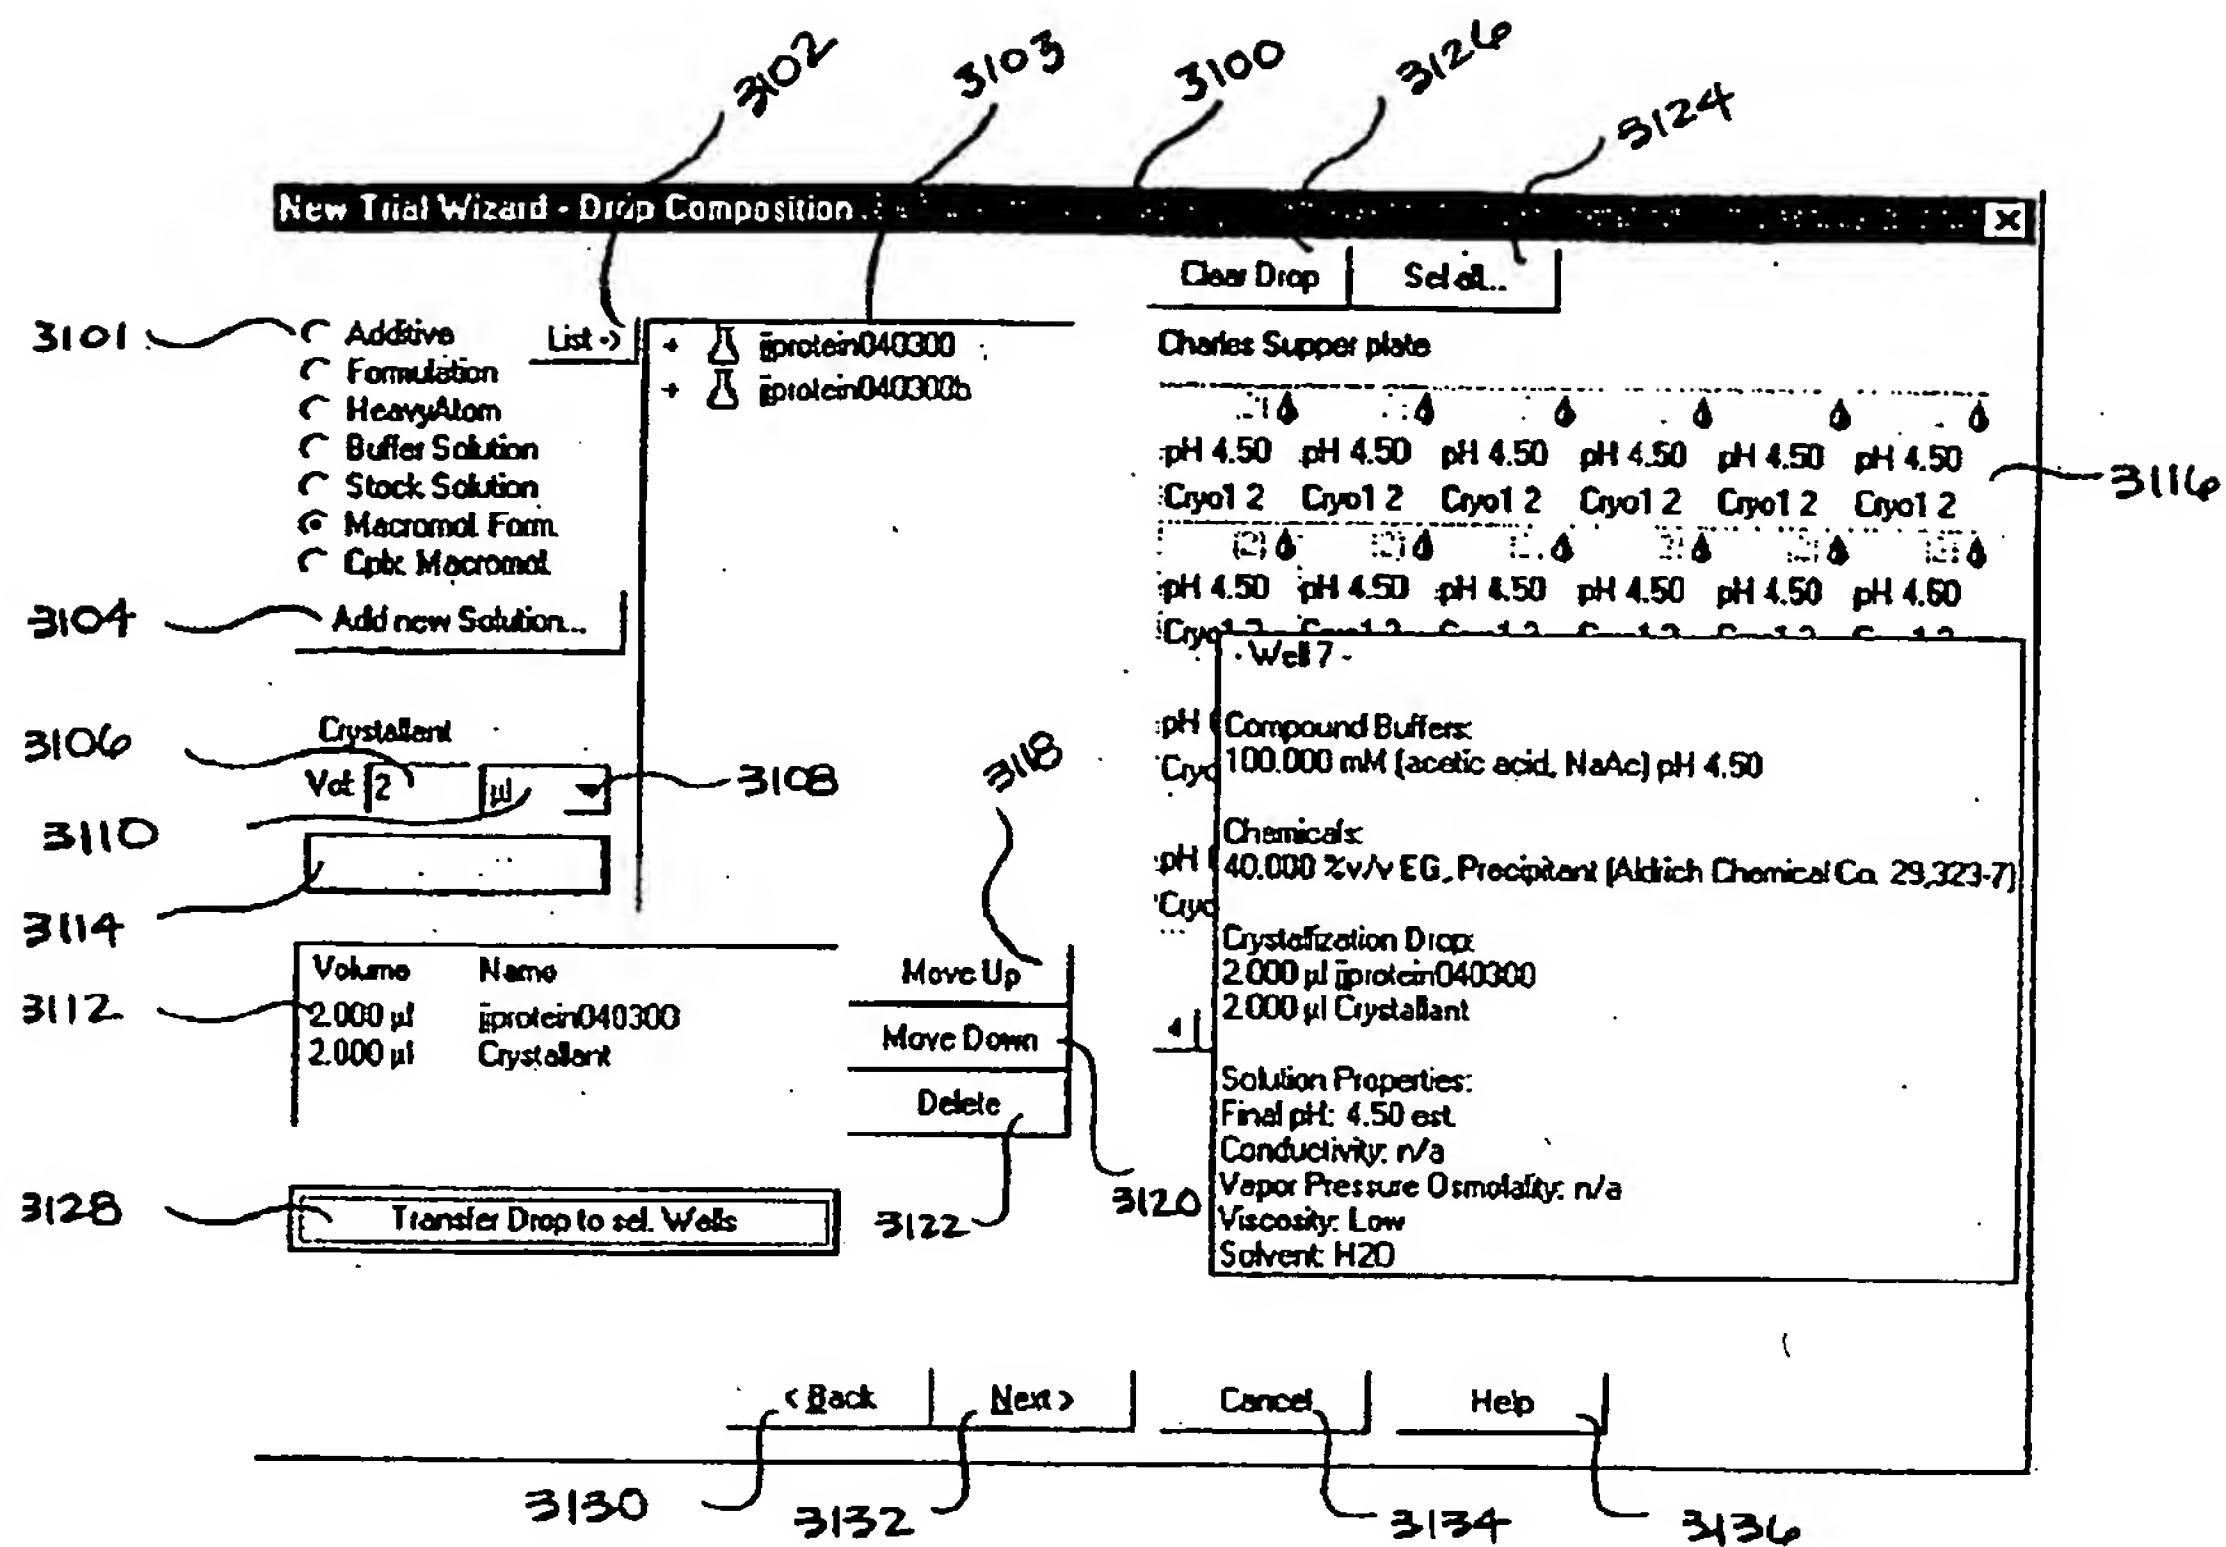 3102 3103 3100 3126 3124
New Trial Wizard - Drop Composition
Clear Drop Sel all...
3101 Additive List ->
Formulation
HeavyAtom
Buffer Solution
Stock Solution
Macromol. Form.
Cplx. Macromol.
jjprotein040300
jjprotein040300b
Charles Supper plate
pH 4.50 pH 4.50 pH 4.50 pH 4.50 pH 4.50 pH 4.50
Cryo1 2 Cryo1 2 Cryo1 2 Cryo1 2 Cryo1 2 Cryo1 2
3116
pH 4.50 pH 4.50 pH 4.50 pH 4.50 pH 4.50 pH 4.50
3104 Add new Solution...
Crystallant
3106 Vol: 2 µl 3108
3110
3114
3118
Volume Name
3112 2.000 µl jjprotein040300
2.000 µl Crystallant
Move Up
Move Down
Delete
3120
3122
3128 Transfer Drop to sel. Wells
pH
Cryo
pH
Cryo
- Well 7 -
Compound Buffers:
100.000 mM (acetic acid, NaAc) pH 4.50
Chemicals:
40.000 %v/v EG, Precipitant (Aldrich Chemical Co. 29,323-7)
Crystallization Drop:
2.000 µl jjprotein040300
2.000 µl Crystallant
Solution Properties:
Final pH: 4.50 est.
Conductivity: n/a
Vapor Pressure Osmolality: n/a
Viscosity: Low
Solvent: H2O
< Back Next > Cancel Help
3130 3132 3134 3136